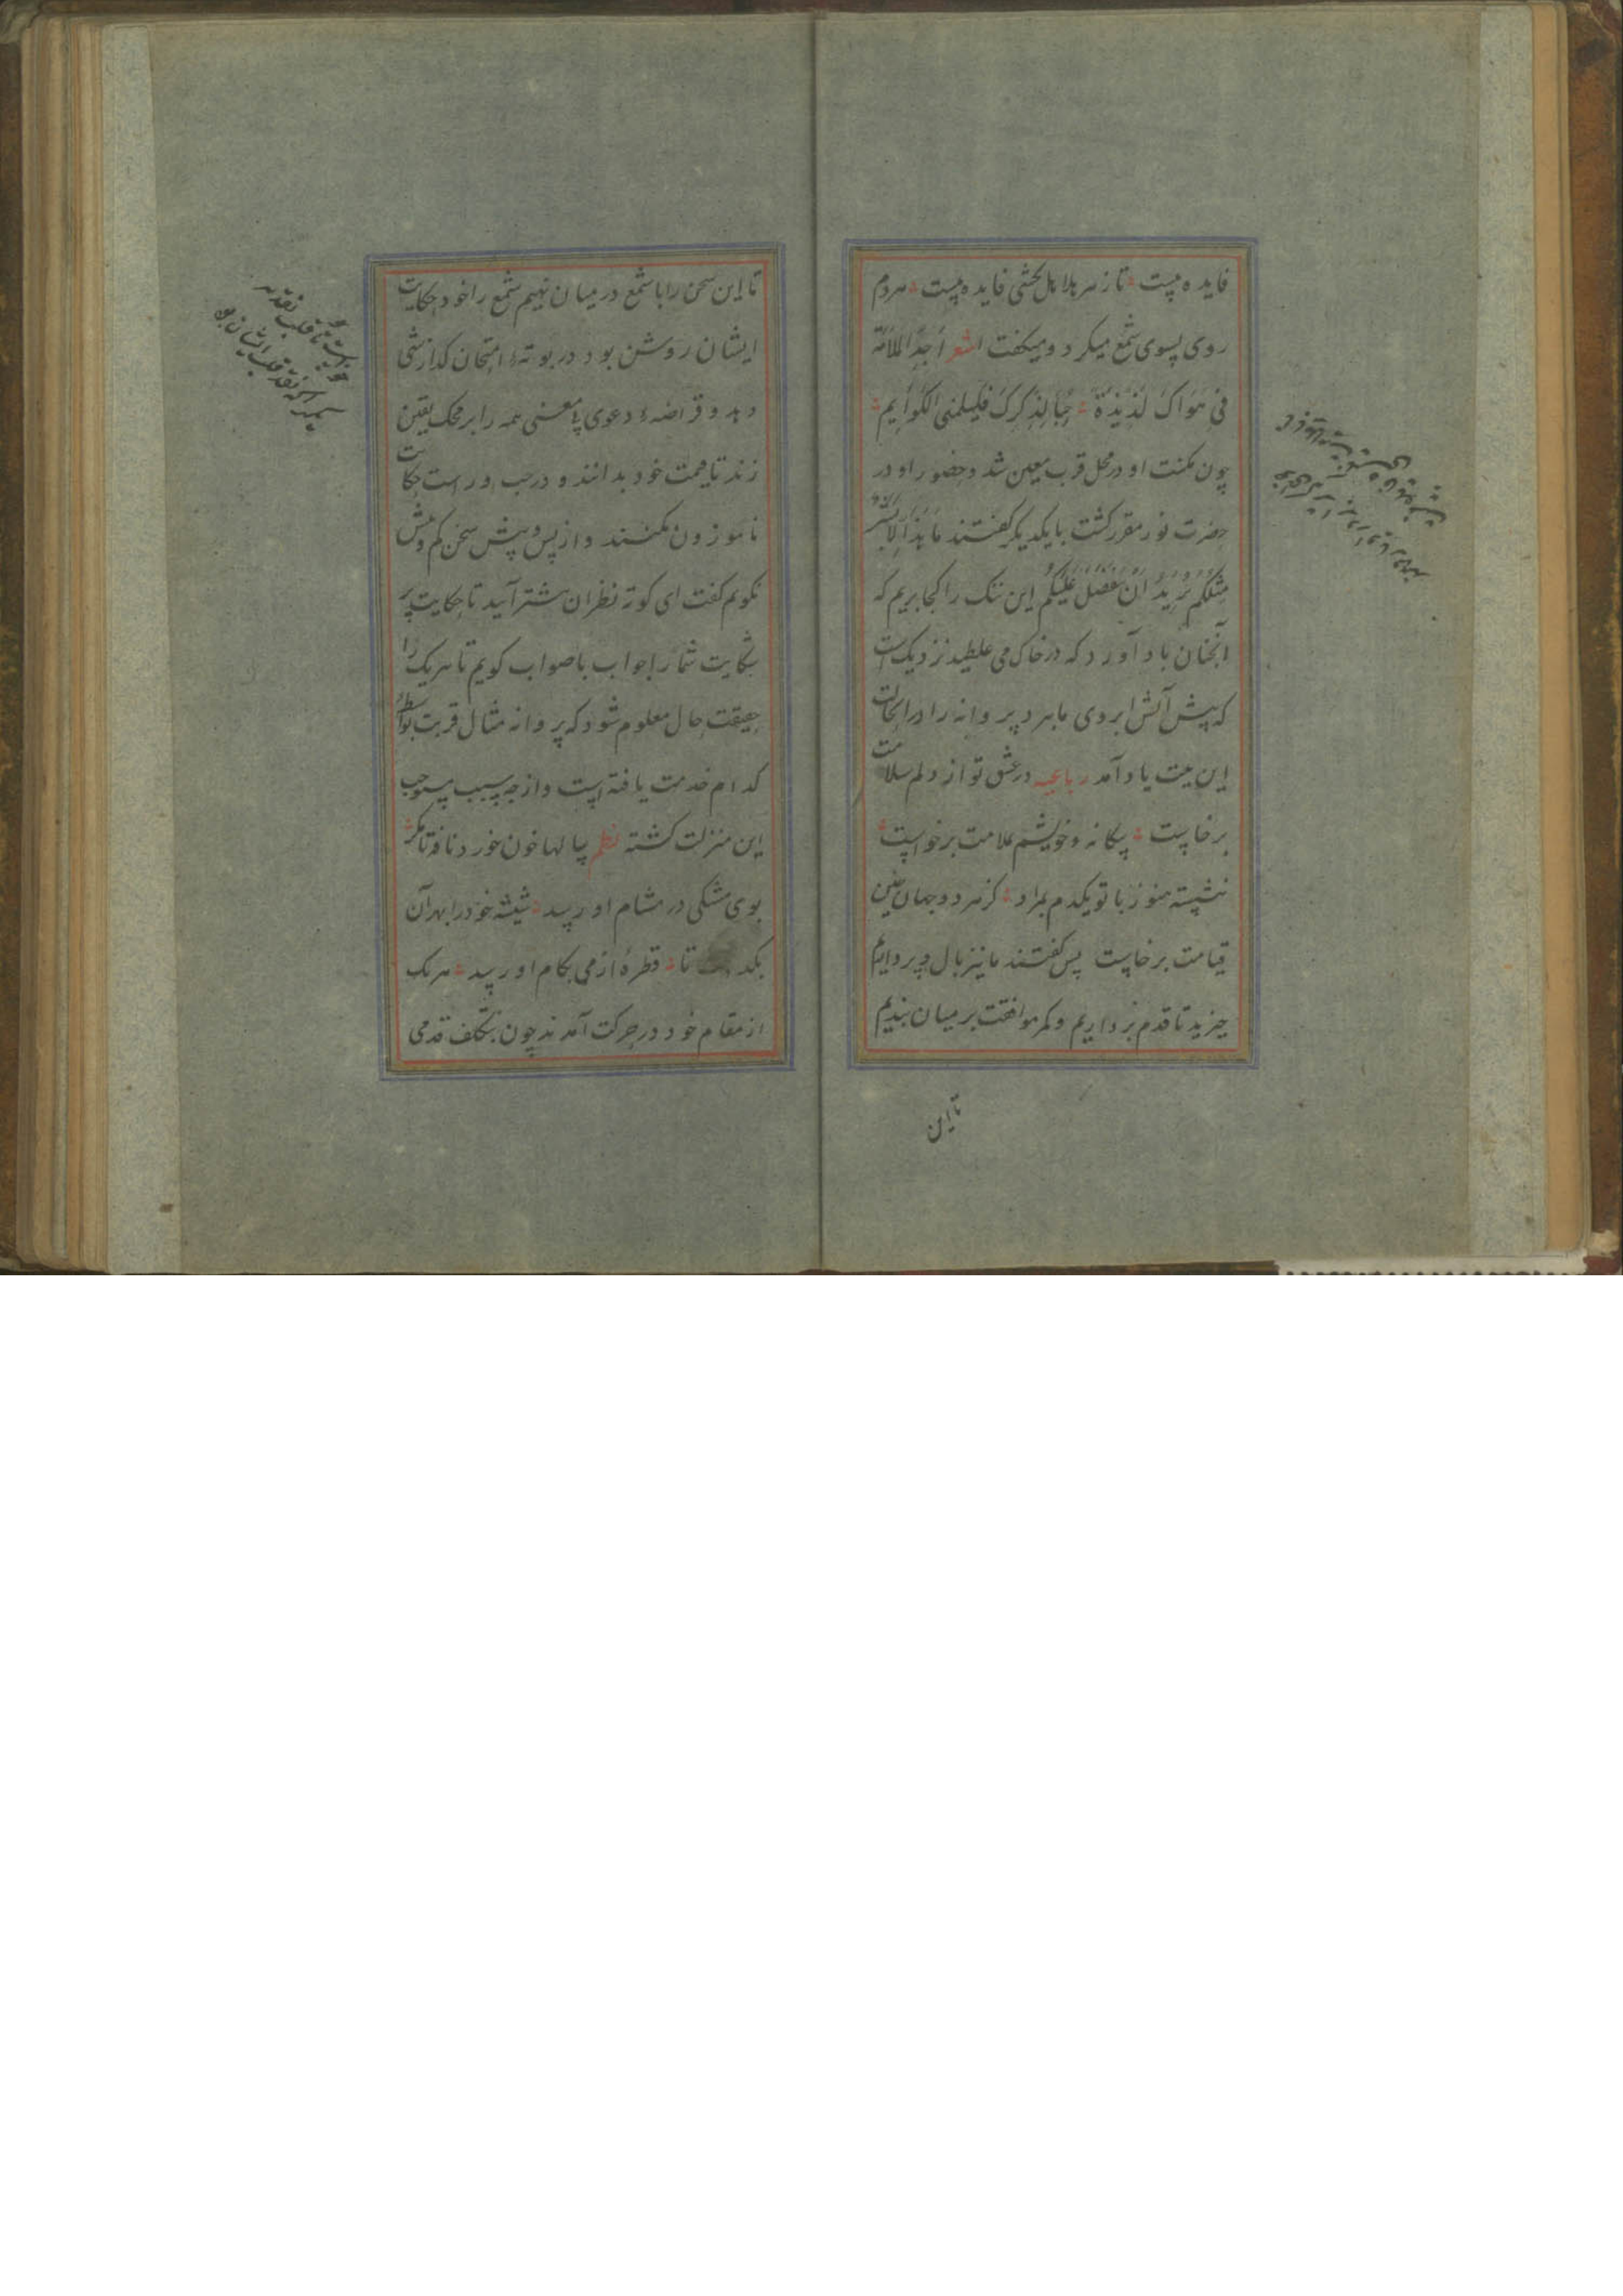 فایده نیست تا زهر بلاهل نچشی فایده نیست هردم
روی بسوی شمع میکرد و میگفت شعر اجد الملامة
فی هواک لذیذة حبا لذکرک فلیلمنی اللوایم
چون مکنت او در محل قرب معین شد و حضور او در
حضرت نور مقرر گشت با یکدیگر گفتند ما هذا الا بشر
مثلکم یرید ان یتفضل علیکم این ننک را کجا بریم که
آنچنان باد آورد که در خاک می غلطید نزدیک است
که پیش آتش ابروی ما برد پروانه را در انحالت
این بیت یاد آمد رباعیه در عشق تو از دلم سلامت
برخاست بیکانه و خویشم بملامت برخواست
ننشسته هنوز با تو یکدم بمراد کز هر دو جهان چنین
قیامت برخاست پس گفتند ما نیز بال و پر داریم
خیزید تا قدم برداریم و کمر موافقت بر میان بندیم
تا این
تا این سخن را با شمع در میان نهیم شمع را خود حکایت
ایشان روشن بود در بوتهٔ امتحان کدازشی
دید و قراضهٔ دعوی بی معنی همه را بر محک یقین
زند تا قیمت خود بدانند و در چپ و راست حکایت
ناموزون نکنند و از پس و پیش سخن کم و بیش
نکویم گفت ای کوته نظران پیشتر آیید تا حکایت پر
شکایت شما را جواب با صواب کویم تا هریک را
حقیقت حال معلوم شود که پروانه مثال قربت بواسطهٔ
کدام خدمت یافته است و از چه سبب مستوجب
این منزلت کشته نظم سالها خون خورد نافه تا مکر
بوی مشکی در مشام او رسید شیشه خود را بهر آن
تا قطرهٔ از می بکام او رسید هریک
از مقام خود در حرکت آمدند چون بتکلف قدمی